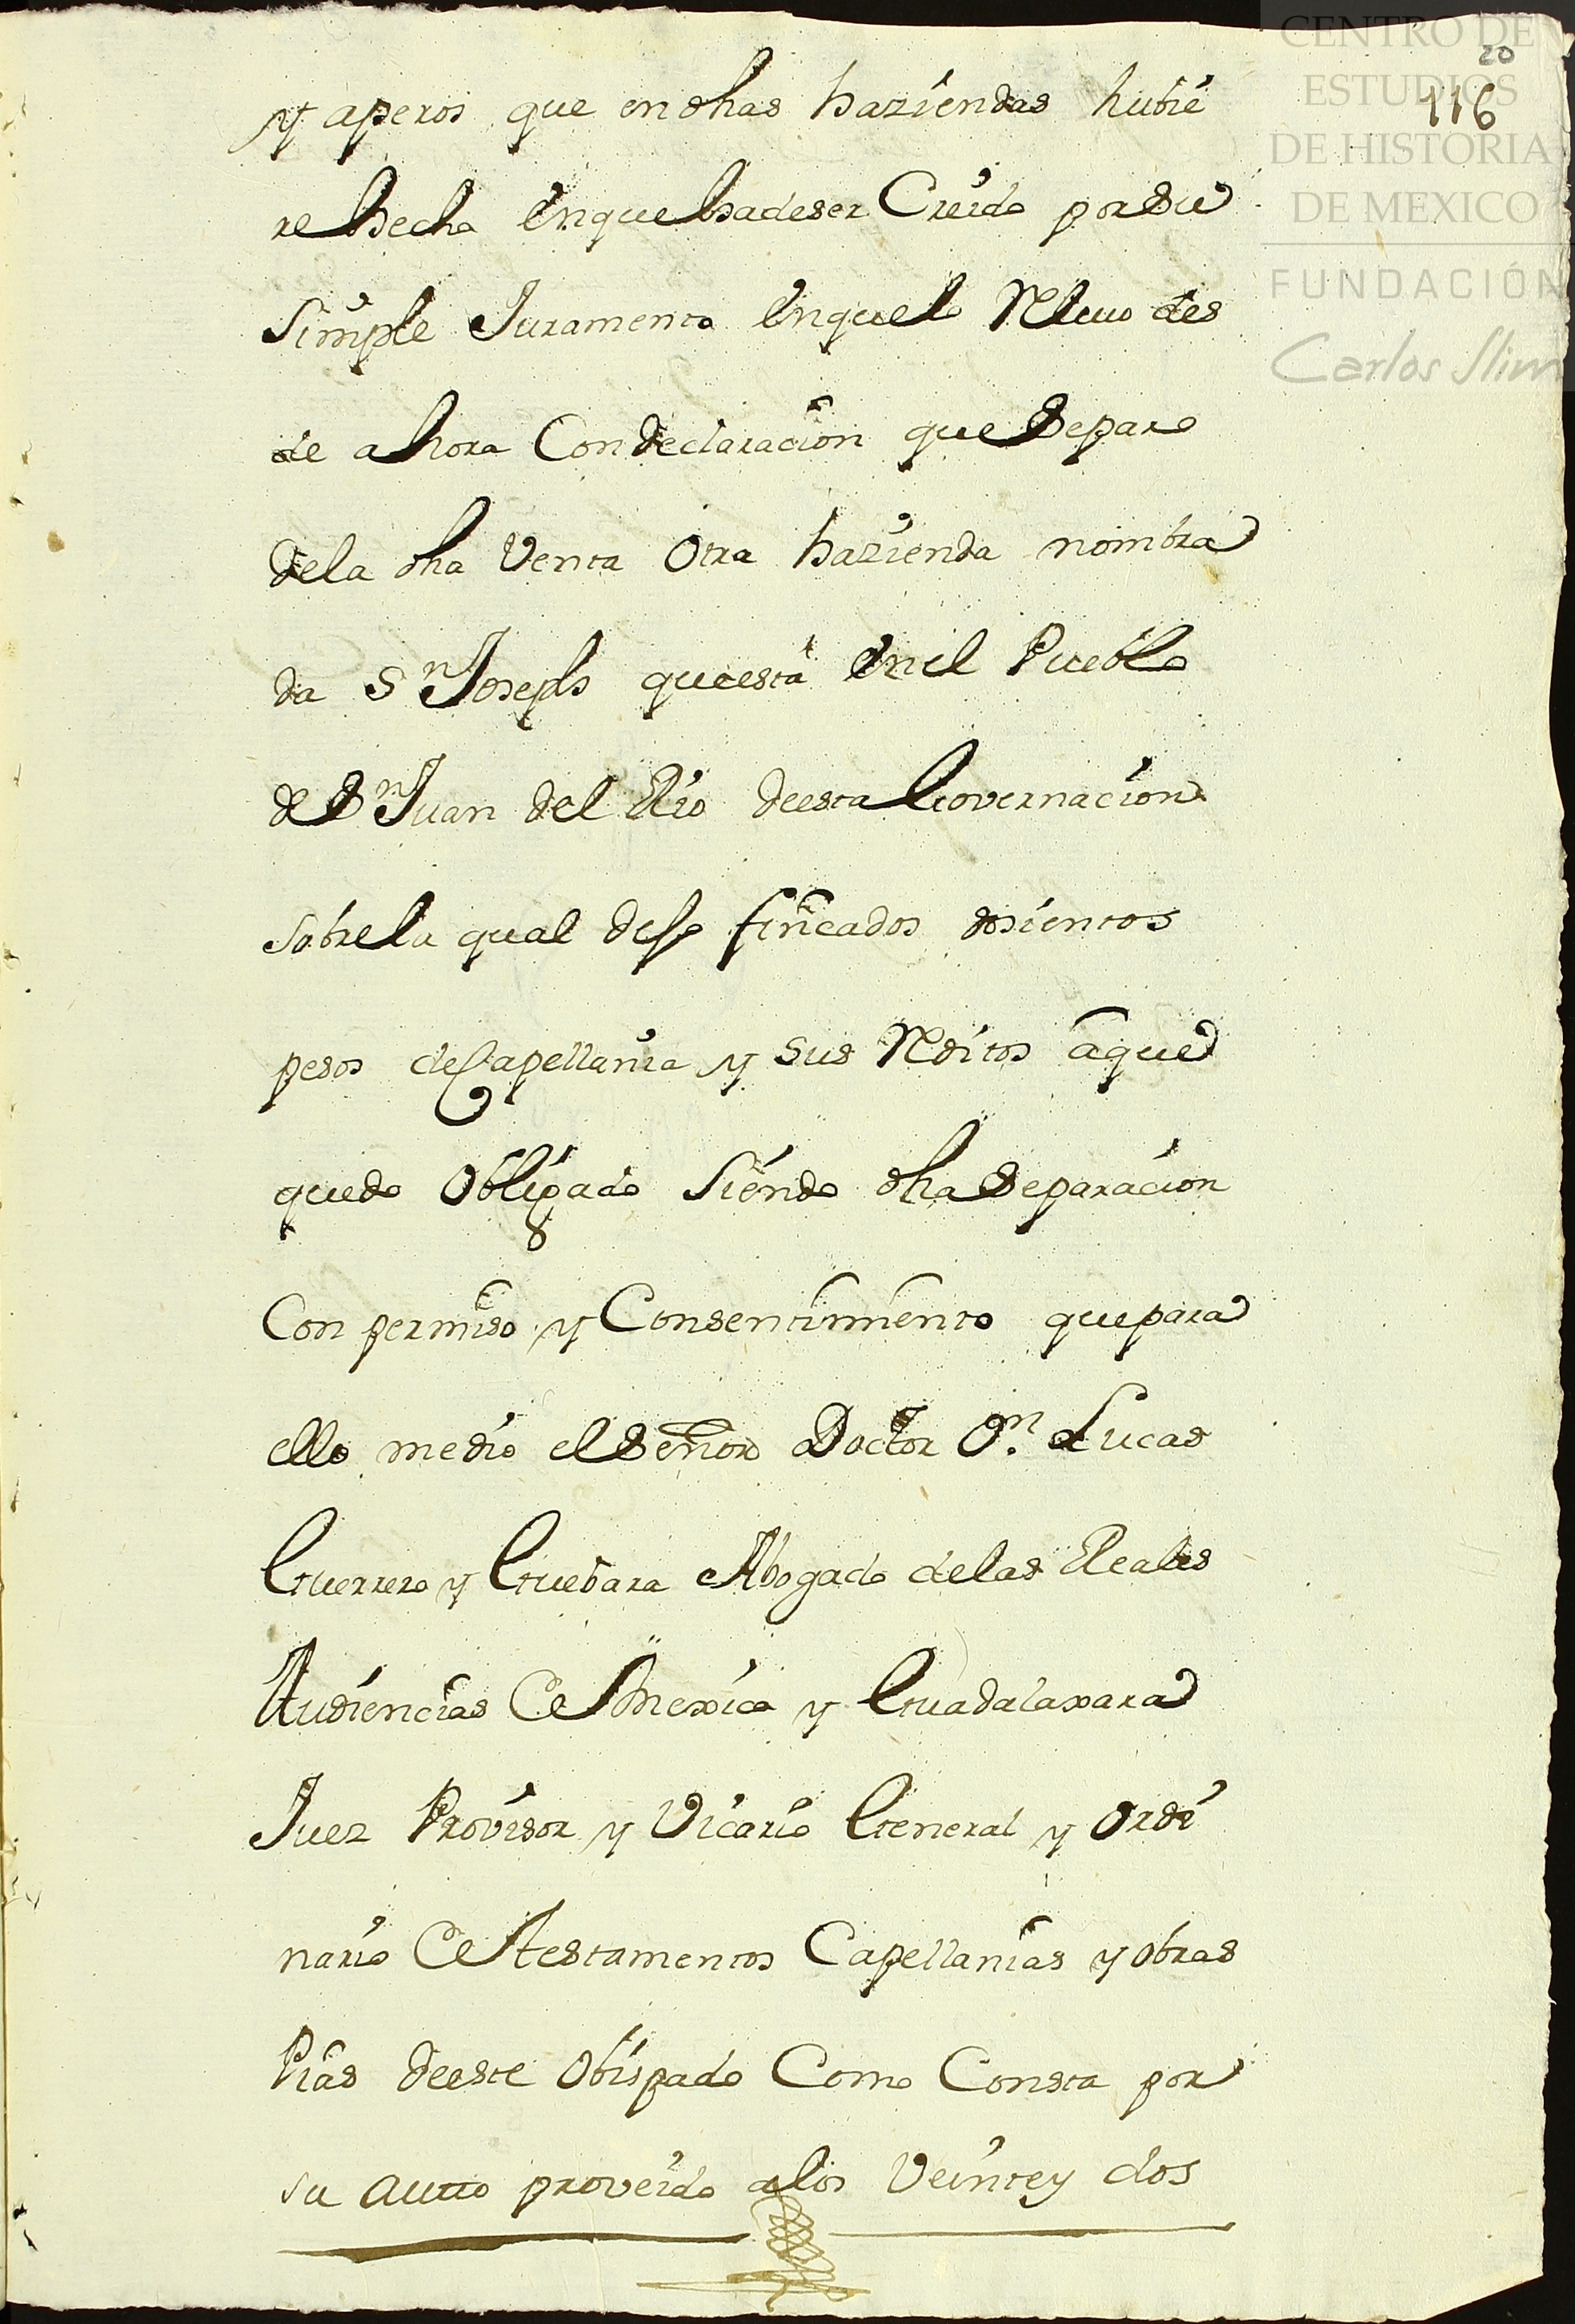 CENTRO DE
ESTUDIOS
DE HISTORIA
DE MEXICO
FUNDACIÓN
Carlos Slim
20
116
y aperos que en dhas haziendas hubie
re hecho en que ha de ser Creido por Su
Simple Juramento en que lo Relevo des
de ahora Con declaracion que Separo
de la dha Venta Otra hazienda nombra
da Sn Joseph que está en el Pueblo
de Sn Juan del Rio de esta Governacion
Sobre la qual dejo fincados dosientos
pesos de Capellania y Sus Reditos a que
quedo Obligado Siendo dha Separacion
Con permiso y Consentimiento que para
ello me dio el Señor Doctor Dn. Lucas
Guerrero y Guebara Abogado de las Reales
Audiencias de Mexico y Guadalaxara
Juez Provisor y Vicario General y Ordi
nario de testamentos Capellanias y obras
Pias de este Obispado Como Consta por
su autto proveido a los Veinte y dos